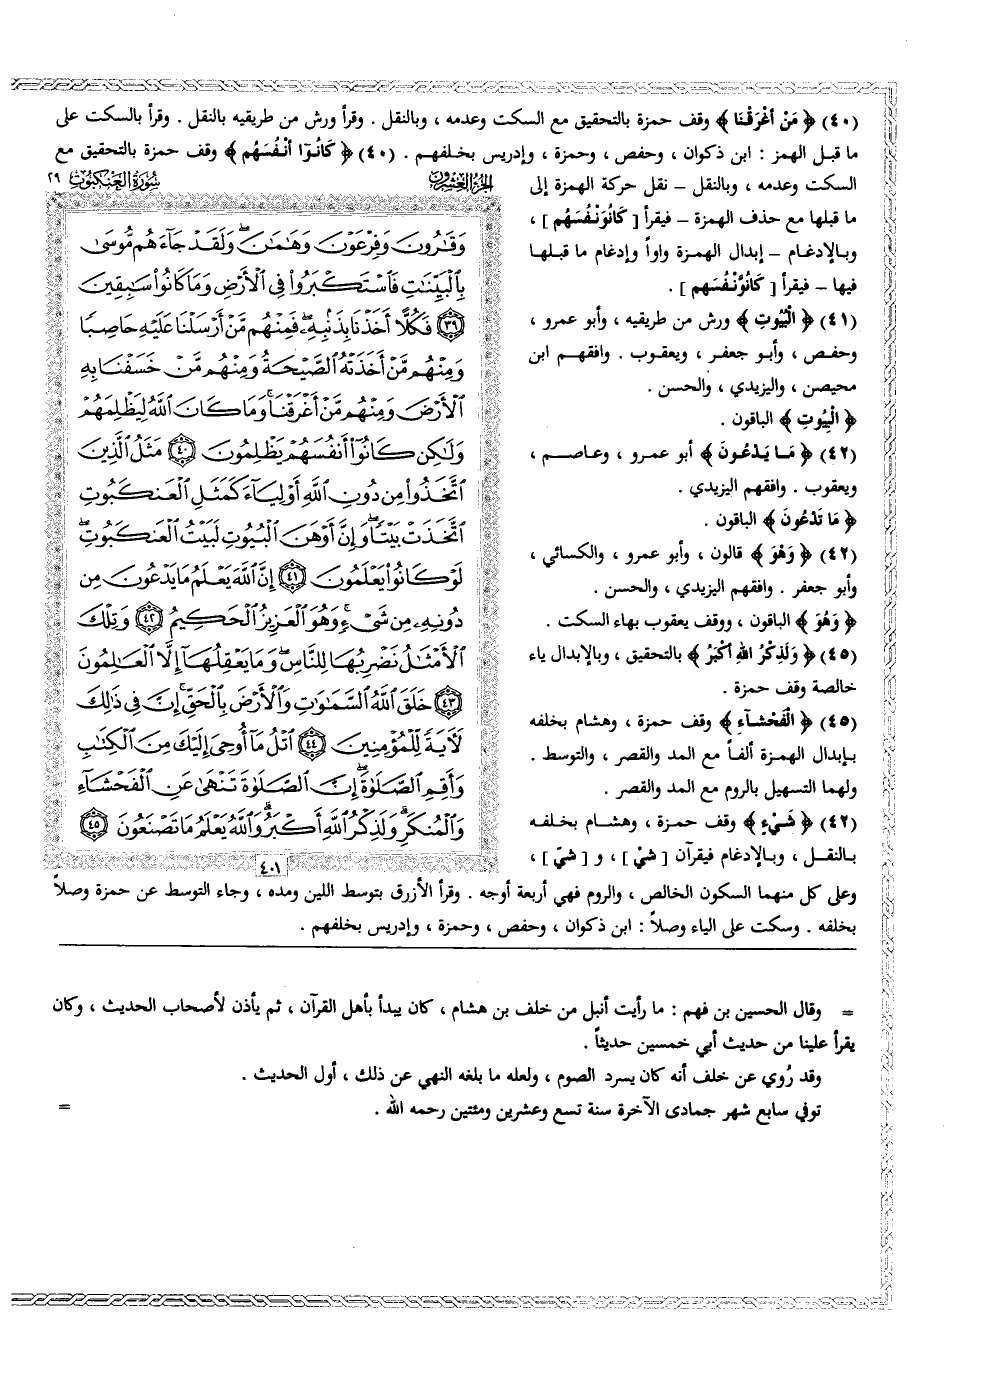 (٤٠) ﴿ مَنْ أَغْرَقْنَا ﴾ وقف حمزة بالتحقيق مع السكت وعدمه ، وبالنقل . وقرأ ورش من طريقيه بالنقل . وقرأ بالسكت على
ما قبل الهمز : ابن ذكوان ، وحفص ، وحمزة ، وإدريس بخلفهم . (٤٠) ﴿ كَانُوٓا أَنْفُسَهُم ﴾ وقف حمزة بالتحقيق مع
السكت وعدمه ، وبالنقل – نقل حركة الهمزة إلى
ما قبلها مع حذف الهمزة – فيقرأ [ كَانُوَنْفُسَهُم ] ،
وبالإدغام – إبدال الهمزة واواً وإدغام ما قبلها
فيها – فيقرأ [ كَانُوَّنْفُسَهم ] .
(٤١) ﴿ الْبُيُوتِ ﴾ ورش من طريقيه ، وأبو عمرو ،
وحفص ، وأبو جعفر ، ويعقوب . وافقهم ابن
محيصن ، واليزيدي ، والحسن .
﴿ الْبِيُوتِ ﴾ الباقون .
(٤٢) ﴿ مَا يَدْعُونَ ﴾ أبو عمرو ، وعاصم ،
ويعقوب . وافقهم اليزيدي .
﴿ مَا تَدْعُونَ ﴾ الباقون .
(٤٢) ﴿ وَهْوَ ﴾ قالون ، وأبو عمرو ، والكسائي ،
وأبو جعفر . وافقهم اليزيدي ، والحسن .
﴿ وَهُوَ ﴾ الباقون ، ووقف يعقوب بهاء السكت .
(٤٥) ﴿ وَلَذِكْرُ اللهِ أَكْبَرُ ﴾ بالتحقيق ، وبالإبدال ياء
خالصة وقف حمزة .
(٤٥) ﴿ الْفَحْشآءِ ﴾ وقف حمزة ، وهشام بخلفه
بإبدال الهمزة ألفاً مع المد والقصر ، والتوسط .
ولهما التسهيل بالروم مع المد والقصر .
(٤٢) ﴿ شَيْءٍ ﴾ وقف حمزة ، وهشام بخلفه
بالنقل ، وبالإدغام فيقرآن [ شَيْ ] ، و [ شَيّ ] ،
وعلى كل منهما السكون الخالص ، والروم فهي أربعة أوجه . وقرأ الأزرق بتوسط اللين ومده ، وجاء التوسط عن حمزة وصلاً
بخلفه . وسكت على الياء وصلاً : ابن ذكوان ، وحفص ، وحمزة ، وإدريس بخلفهم .
الجزء العشرون
سورة العنكبوت ٢٩
وَقَٰرُونَ وَفِرْعَوْنَ وَهَٰمَٰنَۖ وَلَقَدْ جَآءَهُم مُّوسَىٰ
بِٱلْبَيِّنَٰتِ فَٱسْتَكْبَرُوا۟ فِى ٱلْأَرْضِ وَمَا كَانُوا۟ سَٰبِقِينَ
٣٩ فَكُلًّا أَخَذْنَا بِذَنۢبِهِۦۖ فَمِنْهُم مَّنْ أَرْسَلْنَا عَلَيْهِ حَاصِبًا
وَمِنْهُم مَّنْ أَخَذَتْهُ ٱلصَّيْحَةُ وَمِنْهُم مَّنْ خَسَفْنَا بِهِ
ٱلْأَرْضَ وَمِنْهُم مَّنْ أَغْرَقْنَاۚ وَمَا كَانَ ٱللَّهُ لِيَظْلِمَهُمْ
وَلَٰكِن كَانُوٓا۟ أَنفُسَهُمْ يَظْلِمُونَ ٤٠ مَثَلُ ٱلَّذِينَ
ٱتَّخَذُوا۟ مِن دُونِ ٱللَّهِ أَوْلِيَآءَ كَمَثَلِ ٱلْعَنكَبُوتِ
ٱتَّخَذَتْ بَيْتًاۖ وَإِنَّ أَوْهَنَ ٱلْبُيُوتِ لَبَيْتُ ٱلْعَنكَبُوتِۖ
لَوْ كَانُوا۟ يَعْلَمُونَ ٤١ إِنَّ ٱللَّهَ يَعْلَمُ مَا يَدْعُونَ مِن
دُونِهِۦ مِن شَىْءٍۚ وَهُوَ ٱلْعَزِيزُ ٱلْحَكِيمُ ٤٢ وَتِلْكَ
ٱلْأَمْثَٰلُ نَضْرِبُهَا لِلنَّاسِۖ وَمَا يَعْقِلُهَآ إِلَّا ٱلْعَٰلِمُونَ
٤٣ خَلَقَ ٱللَّهُ ٱلسَّمَٰوَٰتِ وَٱلْأَرْضَ بِٱلْحَقِّۚ إِنَّ فِى ذَٰلِكَ
لَءَايَةً لِّلْمُؤْمِنِينَ ٤٤ ٱتْلُ مَآ أُوحِىَ إِلَيْكَ مِنَ ٱلْكِتَٰبِ
وَأَقِمِ ٱلصَّلَوٰةَۖ إِنَّ ٱلصَّلَوٰةَ تَنْهَىٰ عَنِ ٱلْفَحْشَآءِ
وَٱلْمُنكَرِۗ وَلَذِكْرُ ٱللَّهِ أَكْبَرُۗ وَٱللَّهُ يَعْلَمُ مَا تَصْنَعُونَ ٤٥
٤٠١
= وقال الحسين بن فهم : ما رأيت أنبل من خلف بن هشام ، كان يبدأ بأهل القرآن ، ثم يأذن لأصحاب الحديث ، وكان
يقرأ علينا من حديث أبي خمسين حديثاً .
وقد رُوي عن خلف أنه كان يسرد الصوم ، ولعله ما بلغه النهي عن ذلك ، أول الحديث .
توفي سابع شهر جمادى الآخرة سنة تسع وعشرين ومئتين رحمه الله . =